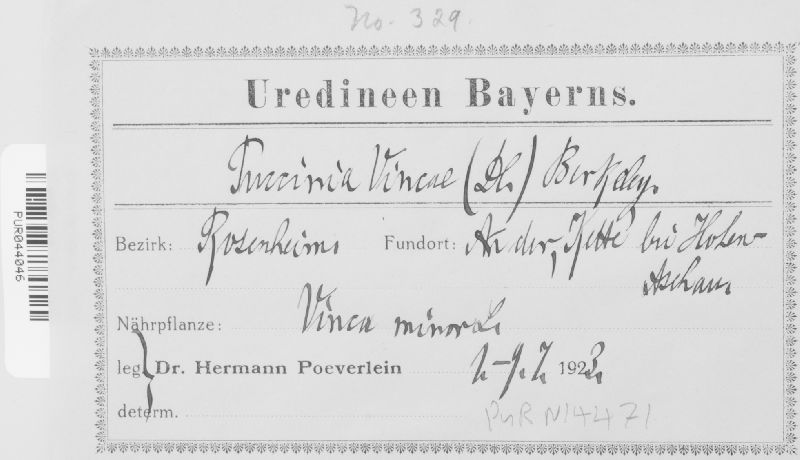 No. 329.
Uredineen Bayerns.
Puccinia Vincae (DC.) Berkeley.
Bezirk: Rosenheim. Fundort: An der „Kette“ bei Hohen-
Aschau.
Nährpflanze: Vinca minor L.
leg. Dr. Hermann Poeverlein 2.-9.7. 1923.
determ.
PUR N14471
PUR044046